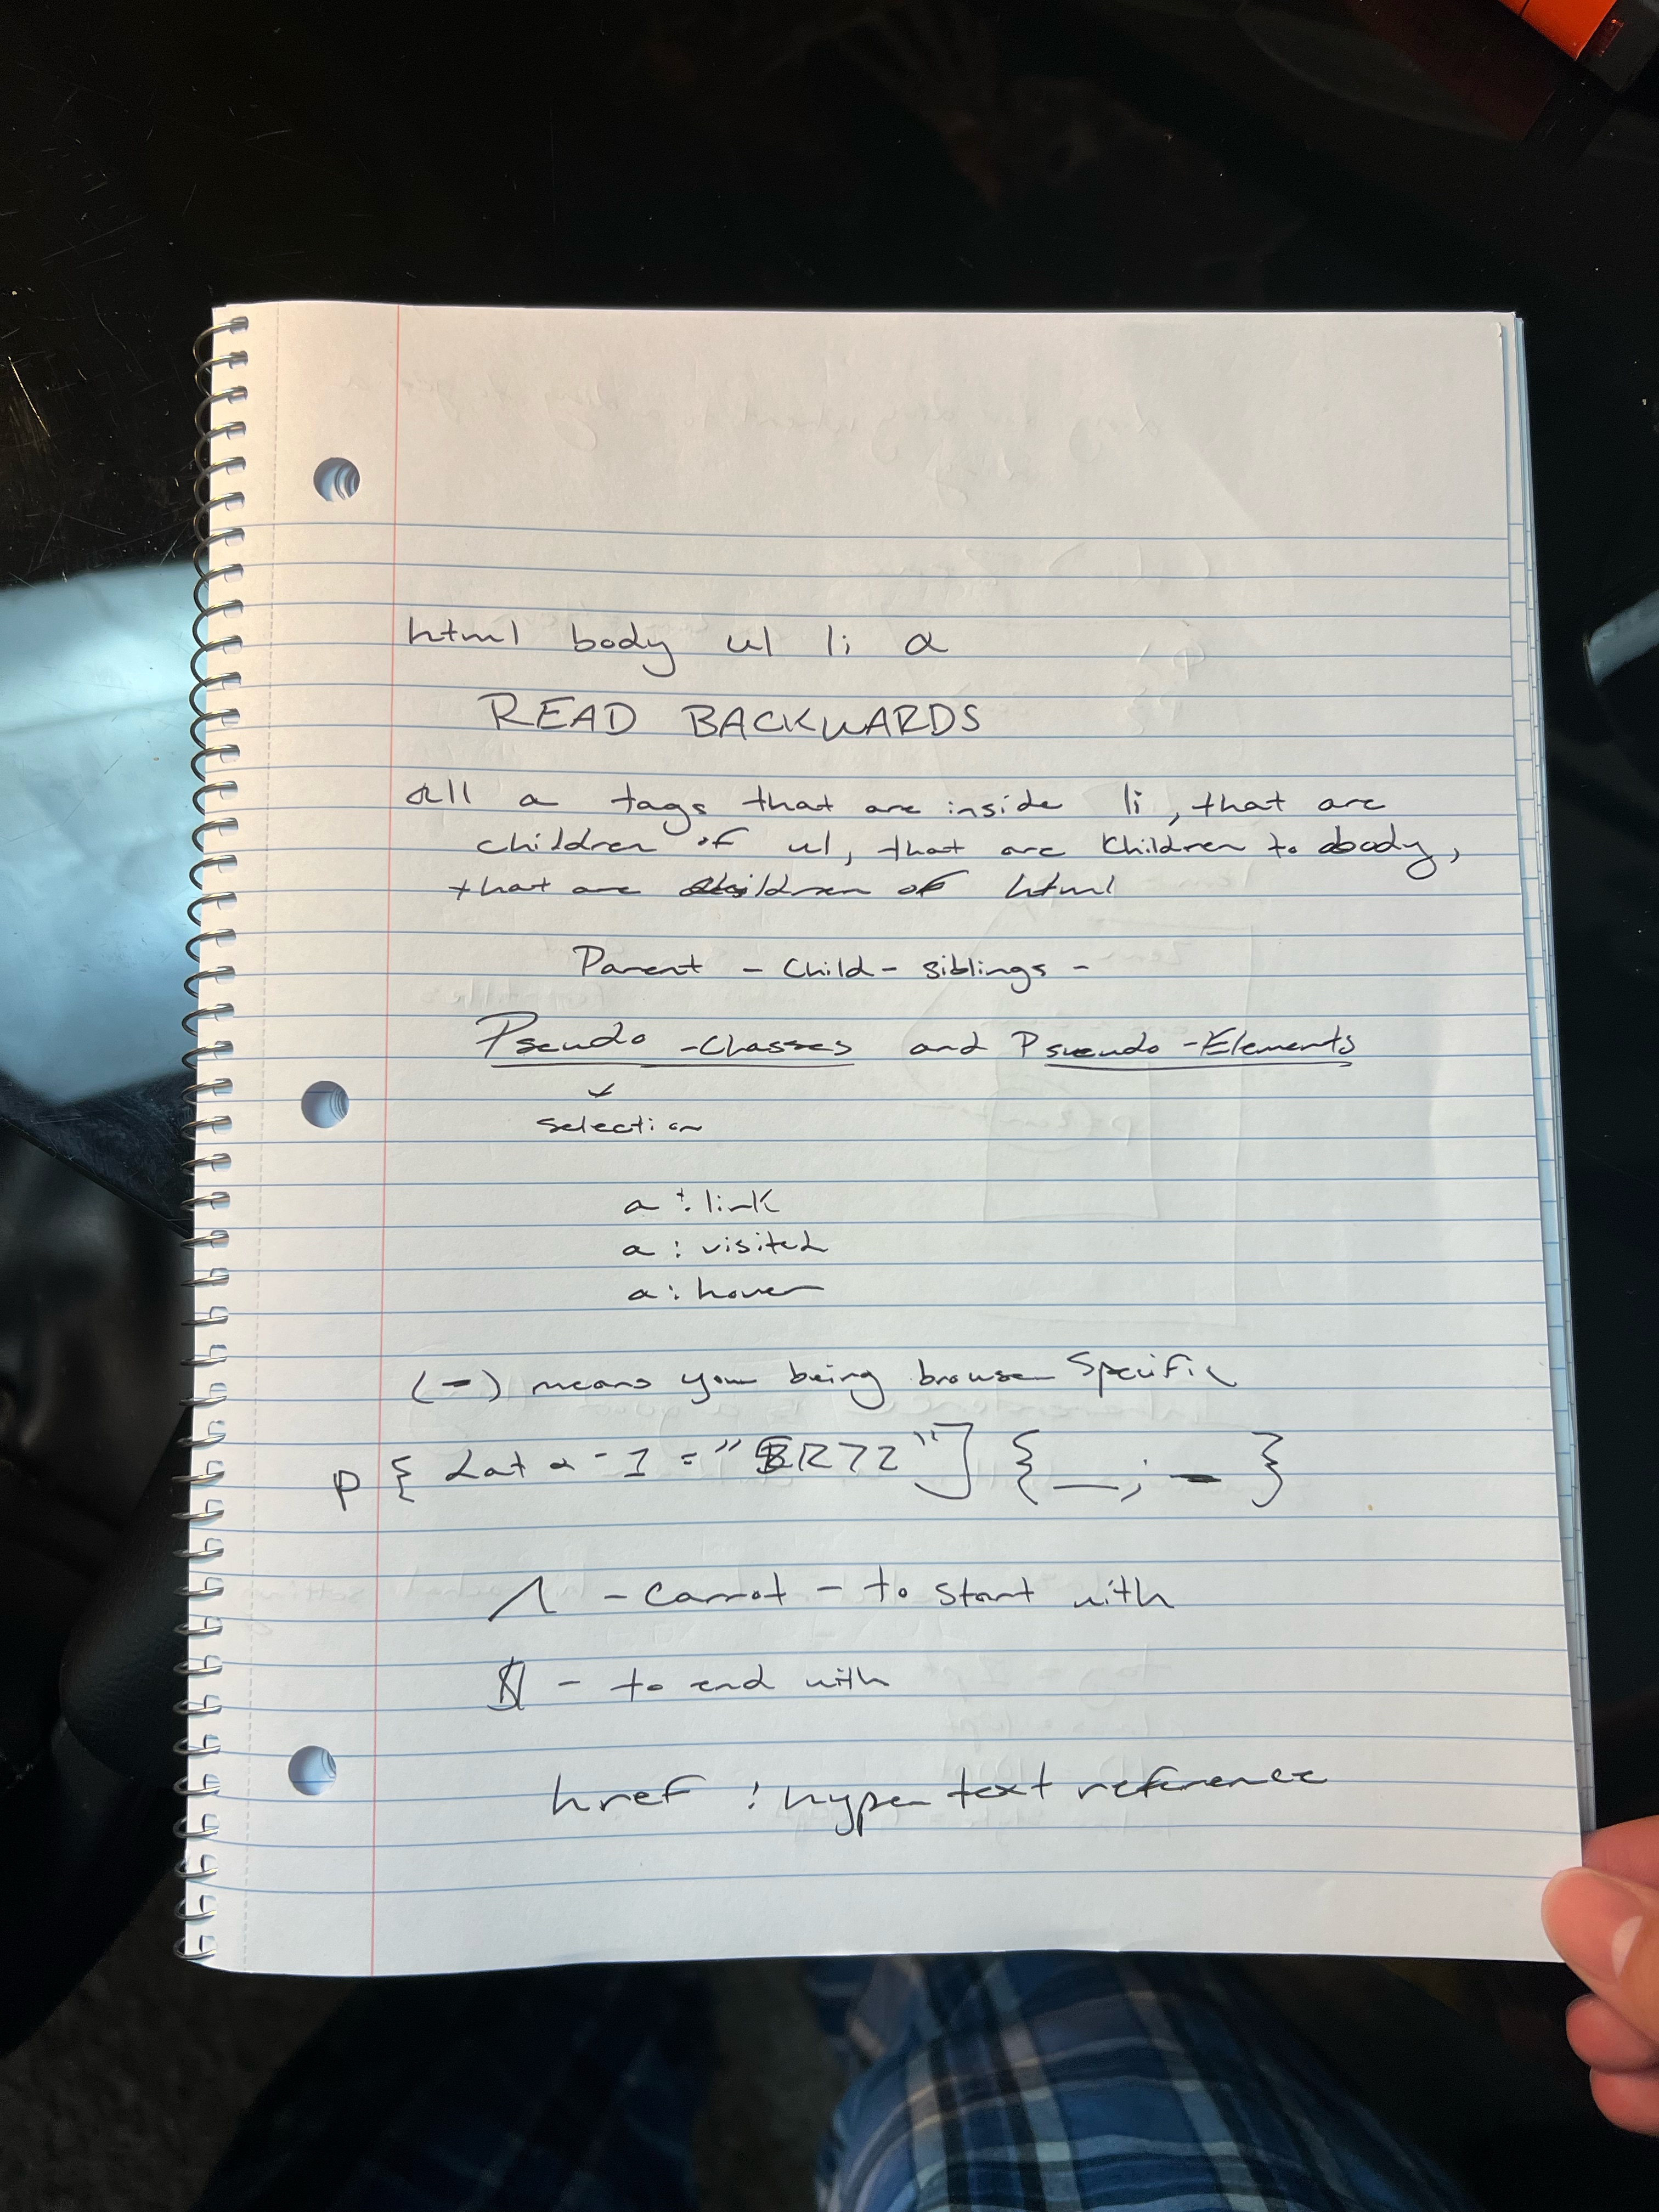 html body ul li a
READ BACKWARDS
all a tags that are inside li, that are
children of ul, that are children to body,
that are children of html
Parent - Child - siblings -
Pseudo - Classes and Psuedo - Elements
selection
a : link
a : visited
a : hover
(-) means your being browser specific
p { data - 1 = " " ] { __; - }
^ - carrot - to start with
$ - to end with
href : hyper text reference